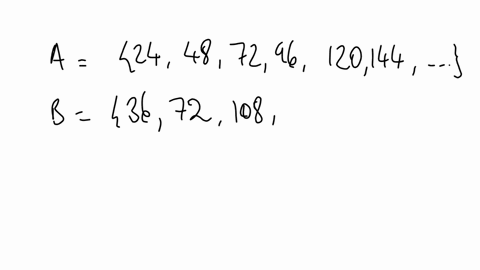 A = {24, 48, 72, 96, 120, 144, ...}
B = {36, 72, 108,